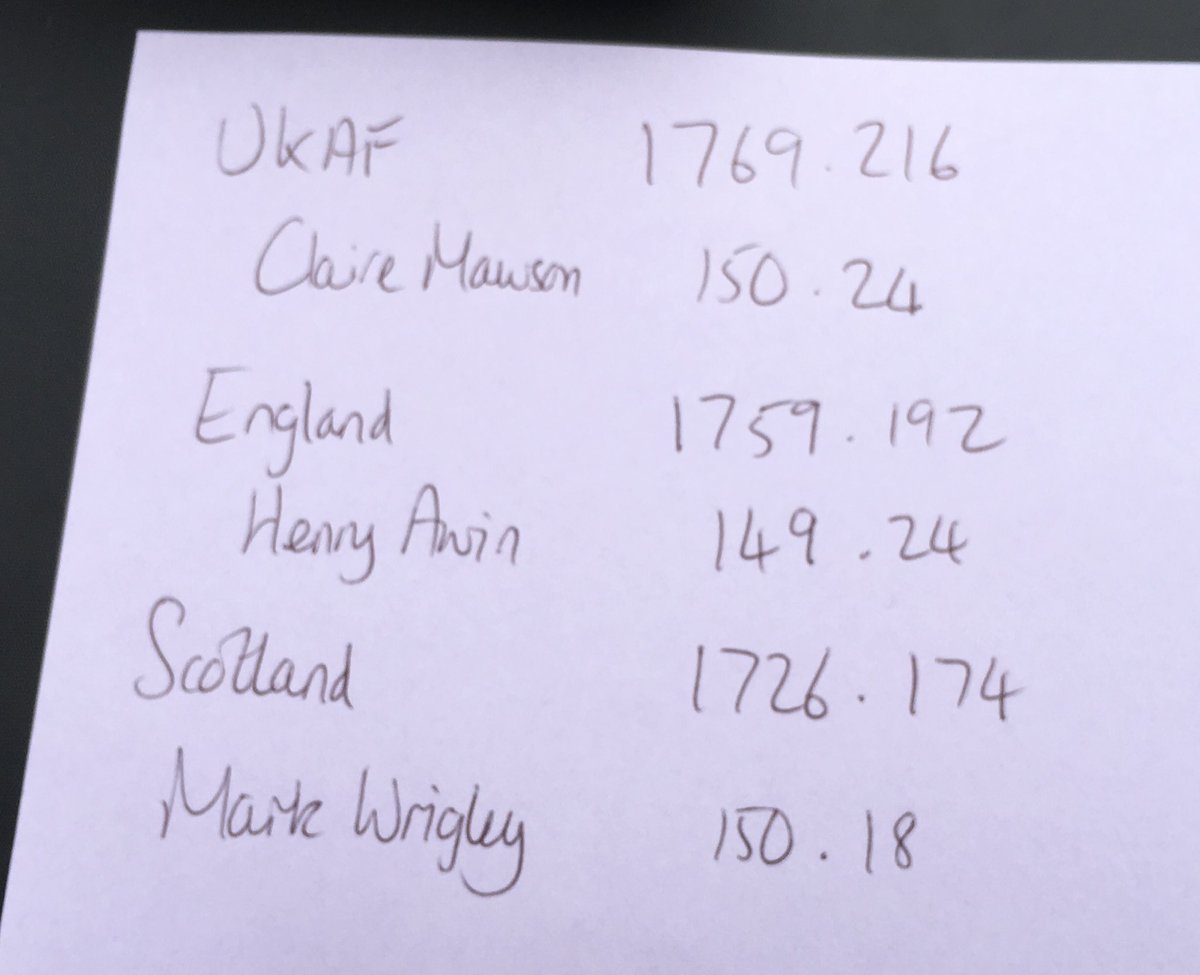 UKAF 1769.216
Claire Mawson 150.24
England 1759.192
Henry Alvin 149.24
Scotland 1726.174
Mark Wrigley 150.18